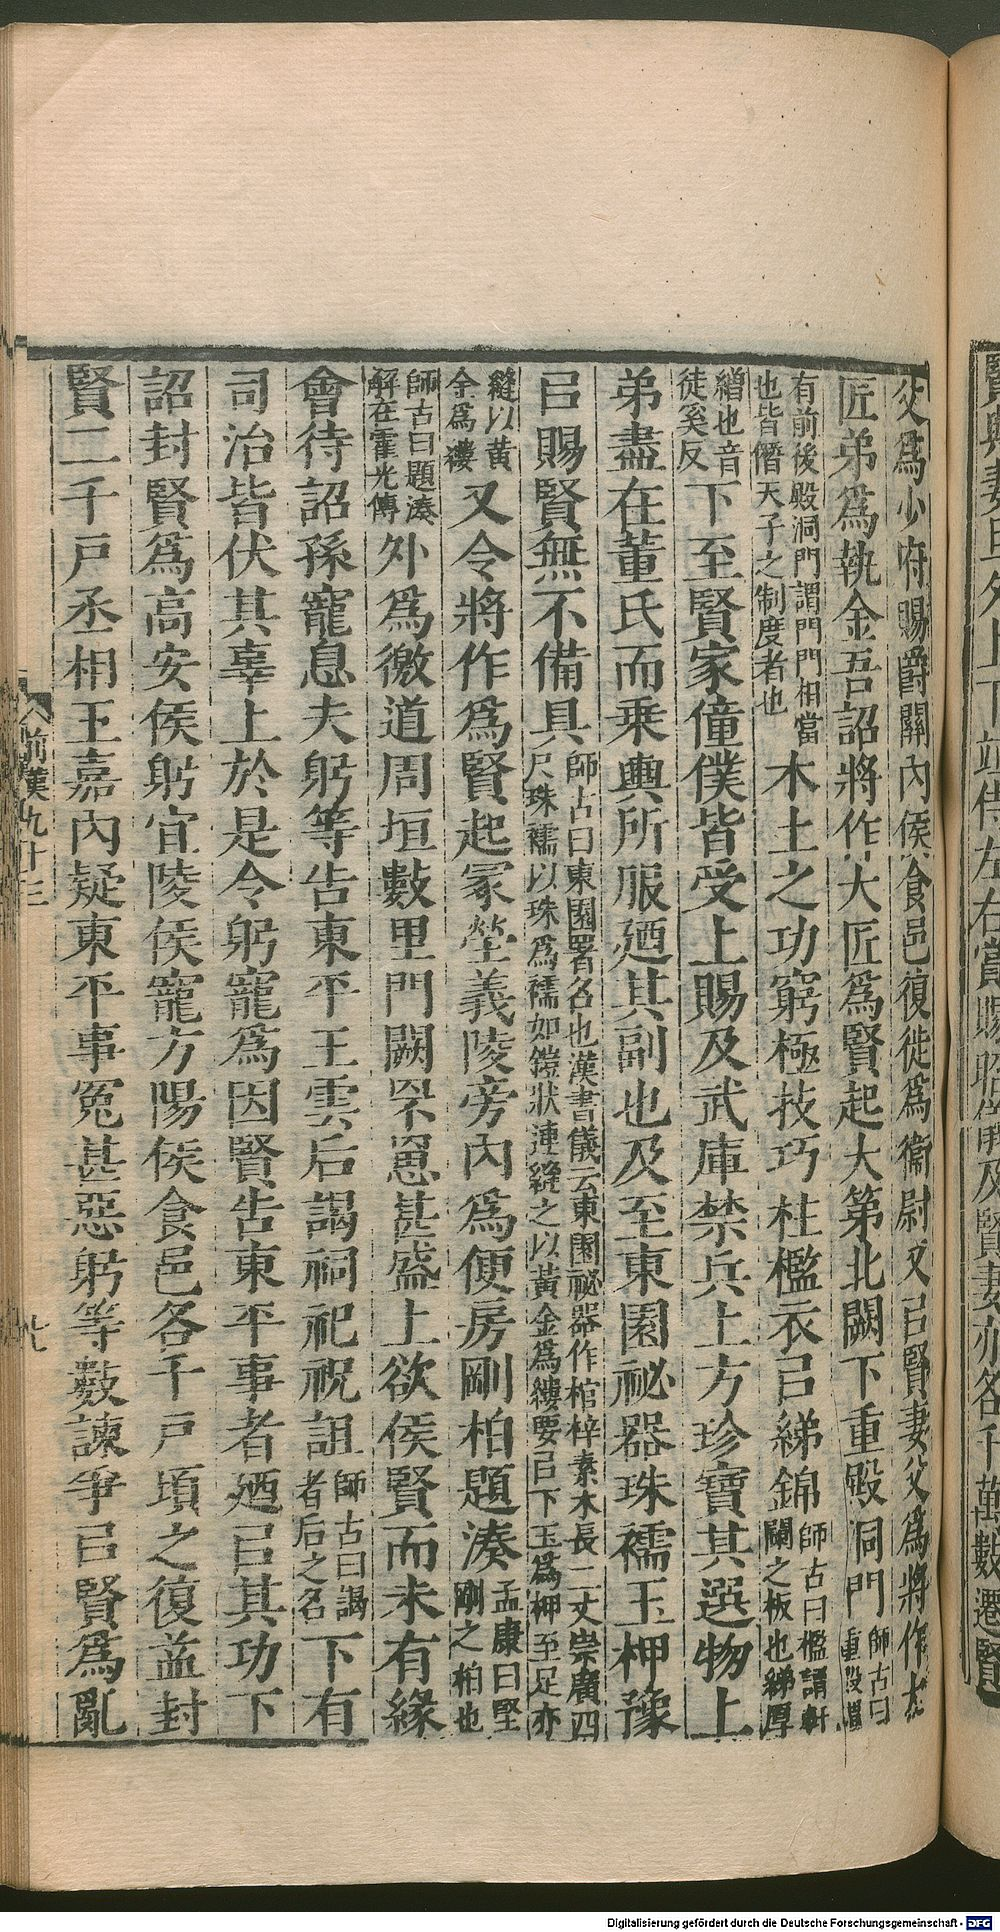 賢與妻旦夕上下並侍左右賞賜昭儀及賢妻亦各千萬數遷賢
父爲少府賜爵關內侯食邑復徙爲衞尉又㠯賢妻父爲將作大
匠弟爲執金吾詔將作大匠爲賢起大第北闕下重殿洞門師古曰重殿謂
有前後殿洞門謂門門相當也皆僭天子之制度者也木土之功窮極技巧柱檻衣㠯綈錦師古曰檻謂軒闌之板也綈厚
繒也音徒奚反下至賢家僮僕皆受上賜及武庫禁兵上方珍寶其選物上
弟盡在董氏而乘輿所服廼其副也及至東園祕器珠襦玉柙豫
㠯賜賢無不備具師古曰東園署名也漢書儀云東園祕器作棺梓素木長二丈崇廣四尺珠襦以珠爲襦如鎧狀連縫之以黃金爲縷要㠯下玉爲柙至足亦
縫以黃金爲縷又令將作爲賢起冢塋義陵旁內爲便房剛柏題湊孟康曰堅剛之柏也
師古曰題湊解在霍光傳外爲徼道周垣數里門闕罘罳甚盛上欲侯賢而未有緣
會待詔孫寵息夫躬等告東平王雲后謁祠祀祝詛師古曰謁者后之名下有
司治皆伏其辜上於是令躬寵爲因賢告東平事者廼㠯其功下
詔封賢爲高安侯躬宜陵侯寵方陽侯食邑各千戶頃之復益封
賢二千戶丞相王嘉內疑東平事冤甚惡躬等數諫爭㠯賢爲亂
前漢九十三
九
Digitalisierung gefördert durch die Deutsche Forschungsgemeinschaft - DFG